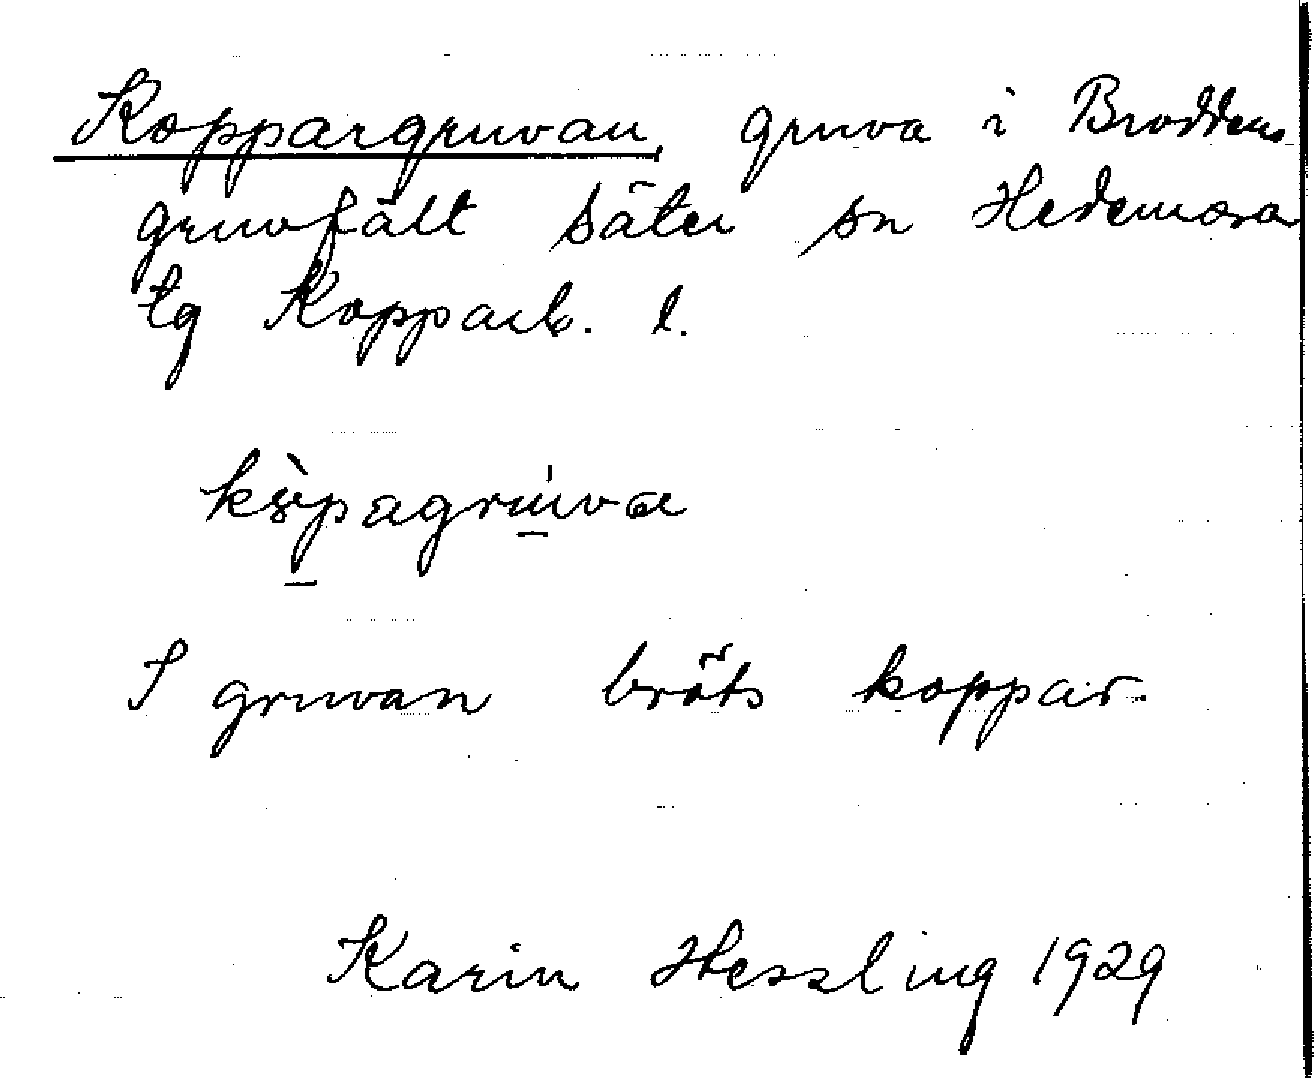 Koppargruvan, gruva i Broddens
gruvfält Säter sn Hedemora
tg Kopparb. l.
I gruvan bröts koppar.
Karin Hessling 1929